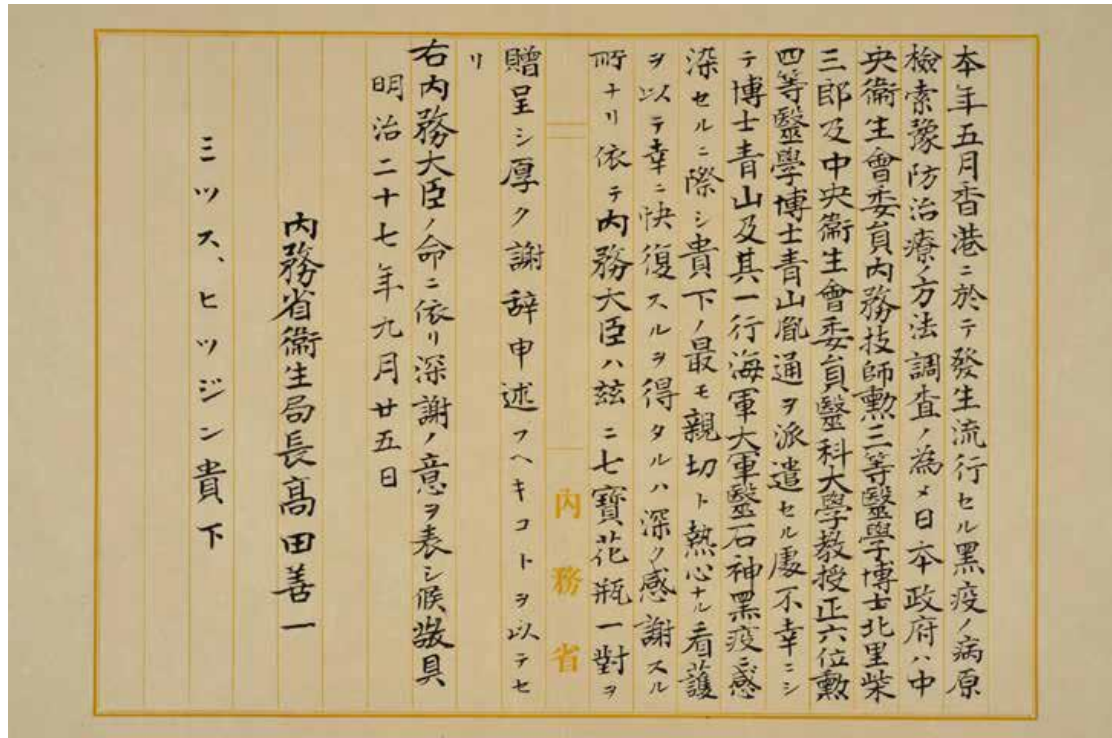 本年五月香港ニ於テ發生流行セル黑疫ノ病原
檢索豫防治療ノ方法調査ノ為メ日本政府ハ中
央衞生會委員內務技師勲三等醫學博士北里柴
三郎及中央衞生會委員醫科大學教授正六位勲
四等醫學博士青山胤通ヲ派遣セル處不幸ニシ
テ博士青山及其一行海軍大軍醫石神黑疫ニ感
染セルニ際シ貴下ノ最モ親切ト熱心ナル看護
ヲ以テ幸ニ快復スルヲ得タルハ深ク感謝スル
所ナリ依テ內務大臣ハ玆ニ七寶花瓶一對ヲ
內務省
贈呈シ厚ク謝辞申述フヘキコトヲ以テセ
リ
右內務大臣ノ命ニ依リ深謝ノ意ヲ表シ候敬具
明治二十七年九月廿五日
內務省衞生局長髙田善一
ミツス、ヒツジン貴下